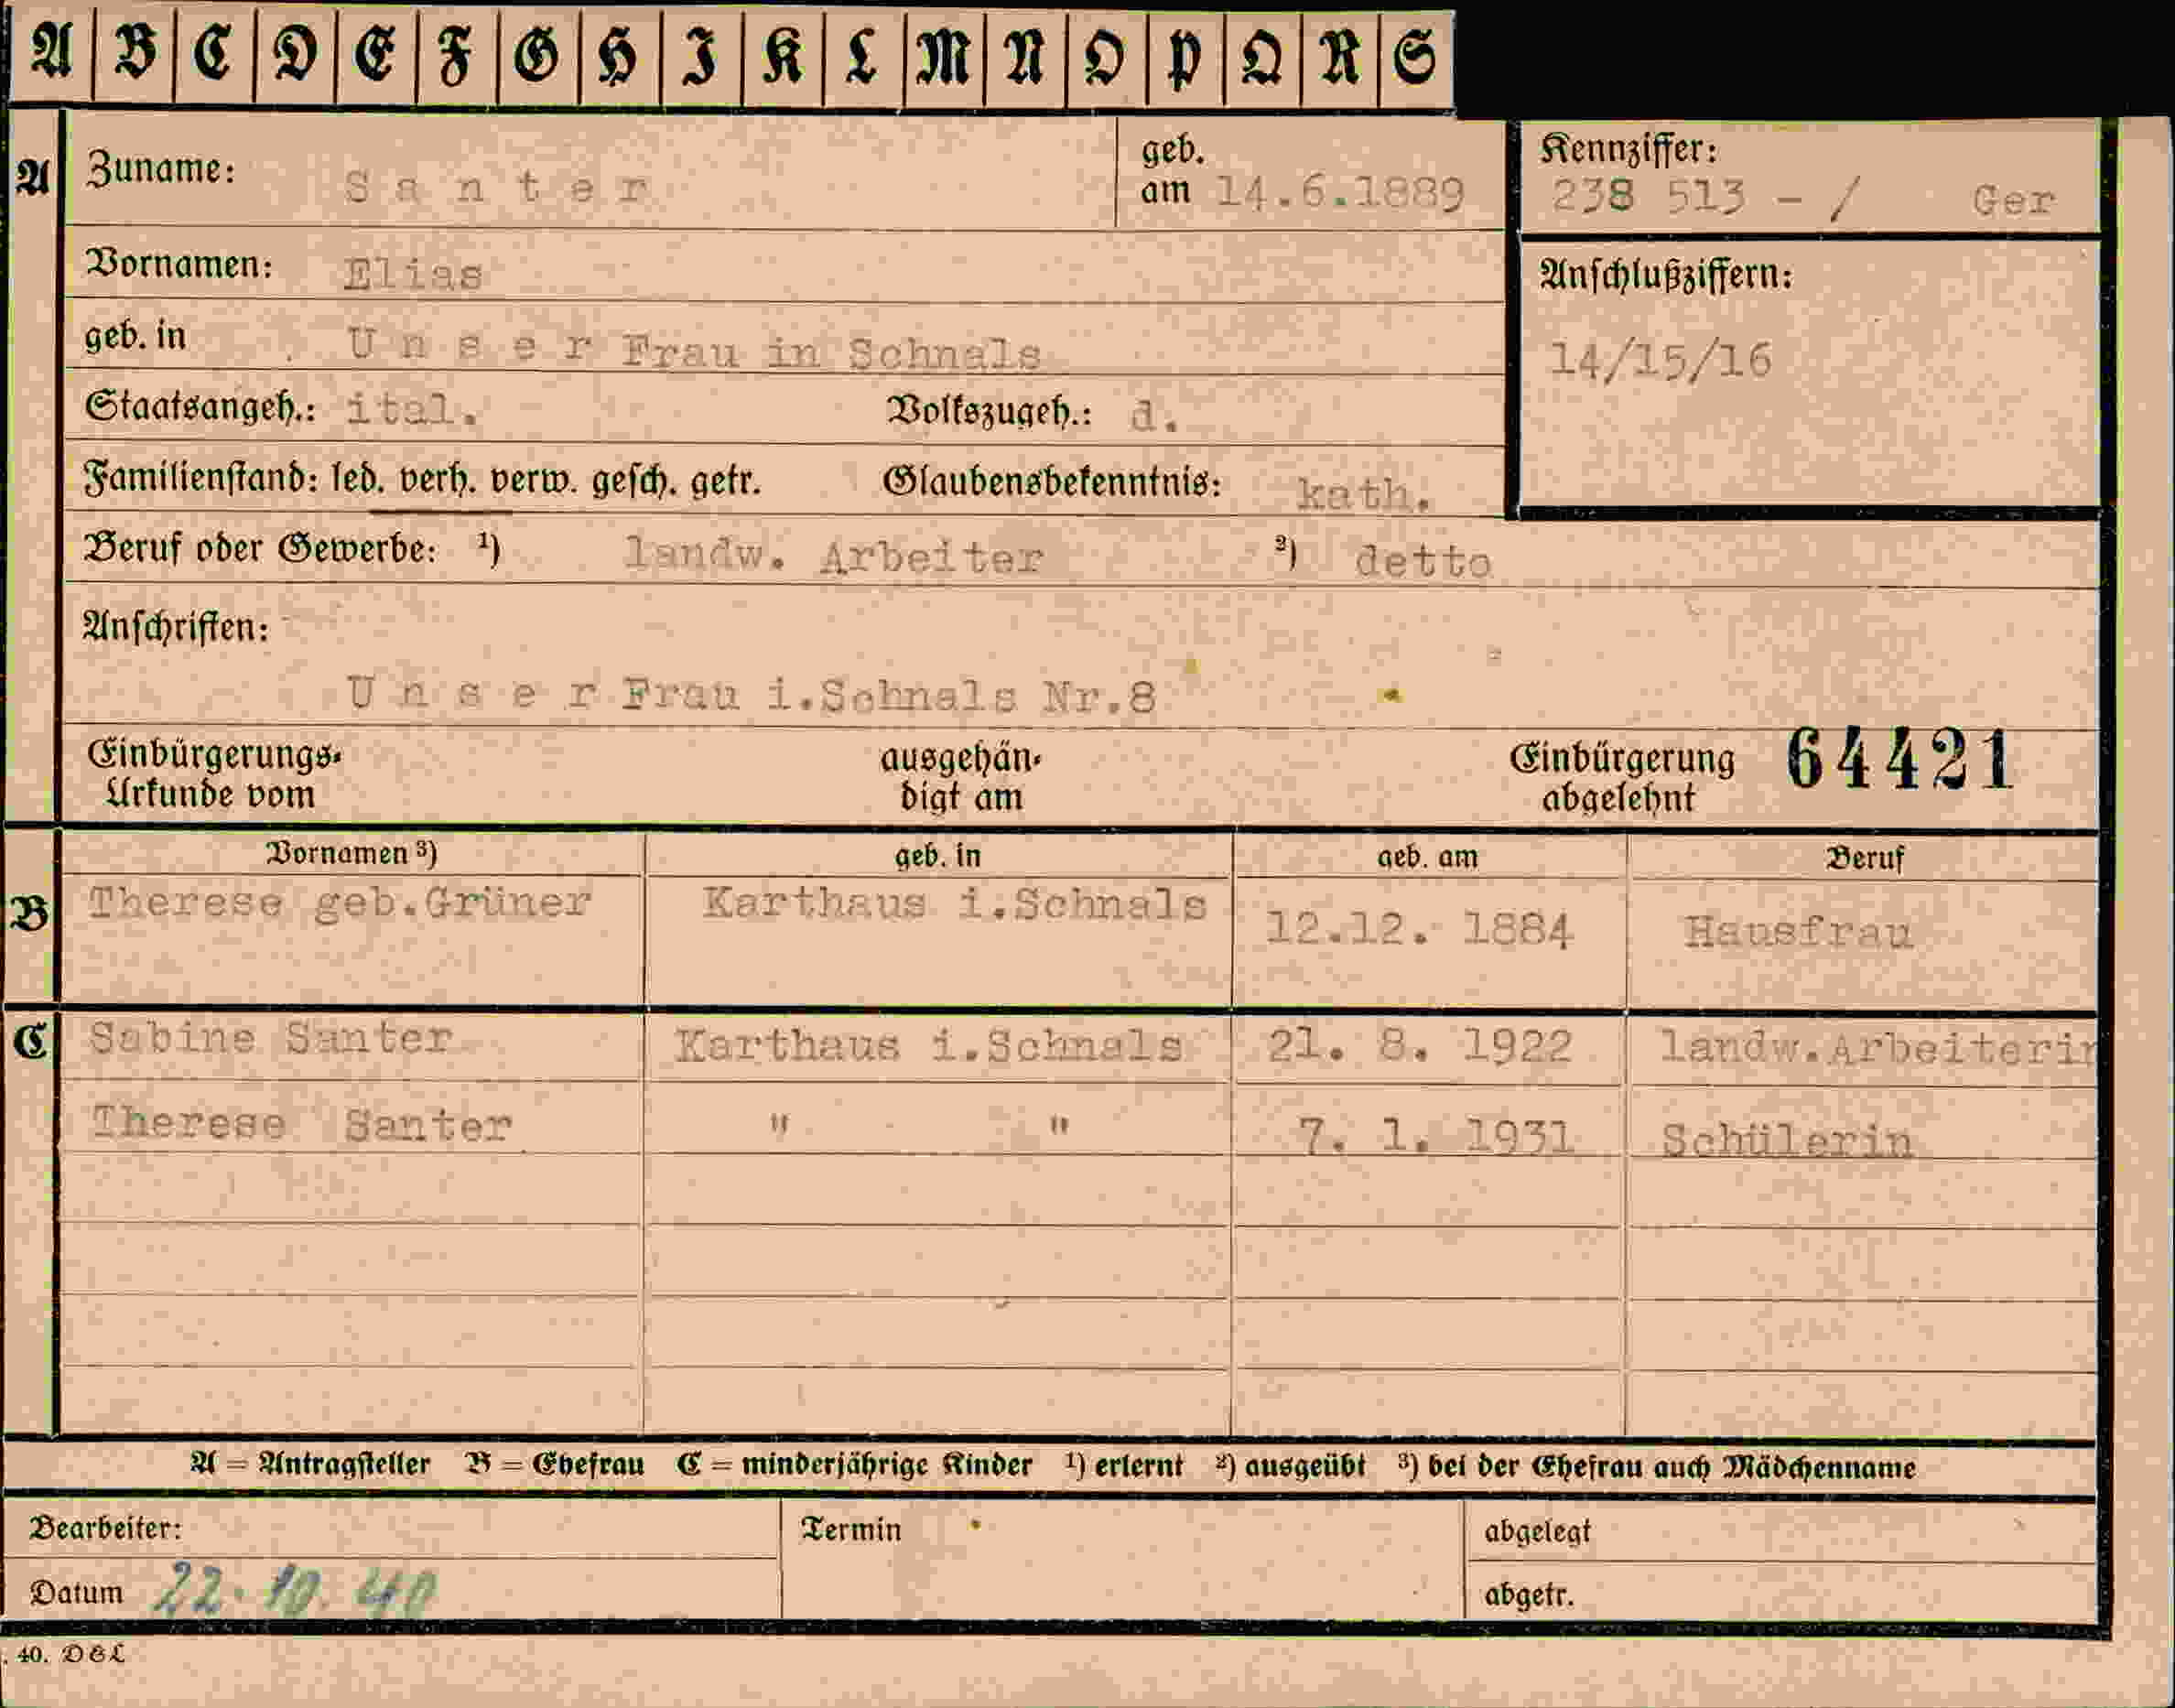 A B C D E F G H I K L M N O P Q R S
A Zuname: Santer geb. am 14.6.1889 Kennziffer: 238 513 - / Ger
Vornamen: Elias Anschlußziffern:
geb. in Unser Frau in Schnals 14/15/16
Staatsangeh.: ital. Volkszugeh.: d.
Familienstand: led. verh. verw. gesch. getr. Glaubensbekenntnis: kath.
Beruf oder Gewerbe: ¹) landw. Arbeiter ²) detto
Anschriften:
Unser Frau i.Schnals Nr.8
Einbürgerungs- ausgehän- Einbürgerung 64421
Urkunde vom digt am abgelehnt
Vornamen ³) geb. in geb. am Beruf
B Therese geb.Grüner Karthaus i.Schnals 12.12. 1884 Hausfrau
C Sabine Santer Karthaus i.Schnals 21. 8. 1922 landw.Arbeiterin
Therese Santer " " 7. 1. 1931 Schülerin
A = Antragsteller B = Ehefrau C = minderjährige Kinder ¹) erlernt ²) ausgeübt ³) bei der Ehefrau auch Mädchenname
Bearbeiter: Termin abgelegt
Datum 22. 10. 40 abgetr.
. 40. DEL